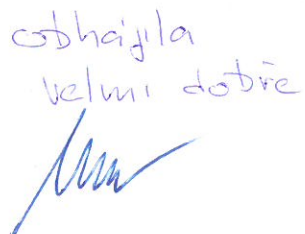 obhájila
velmi dobře